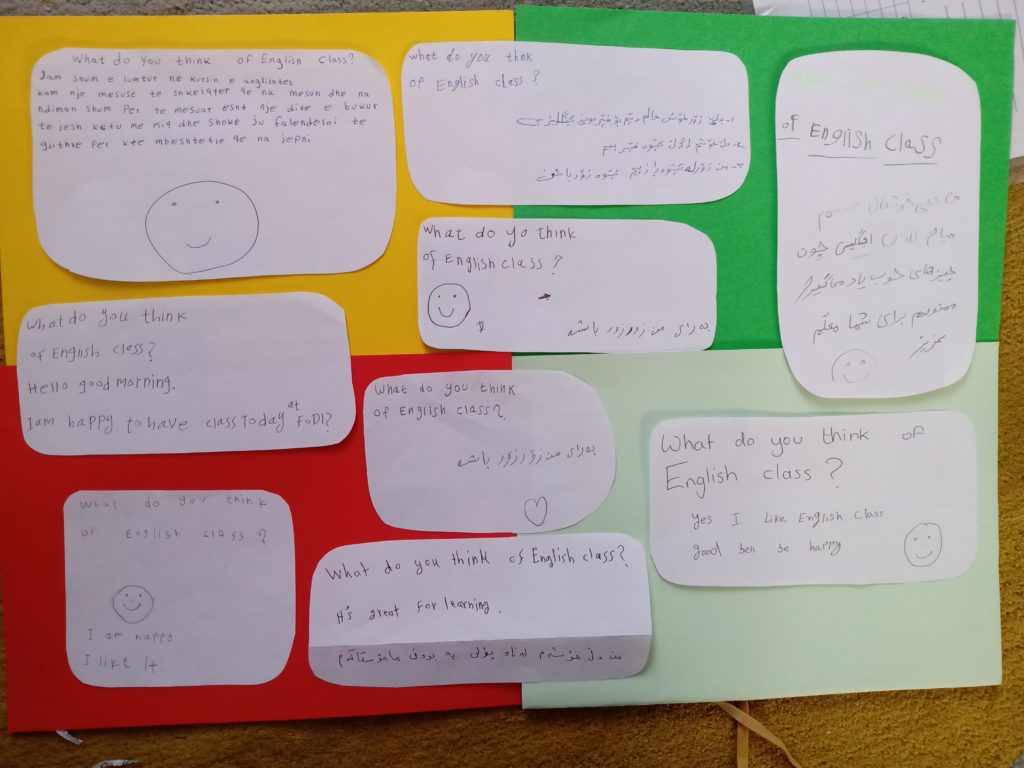 What do you think of English Class?
Jam shum e lumtur ne kursin e anglishtes
kam nje mesuse te shkelqyer qe na meson dhe na
ndiman shum per te mesuar esht nje dite e bukur
te jesh ketu me miq dhe shoke ju falenderoi te
githve per kte mbeshtetje qe na jepni
what do you think
of English class?
of English class
من خیلی خوشحال هستم
میام کلاس انگلیسی چون
چیزهای خوب یاد می‌گیرم
ممنونم برای شما معلم
عزیز
What do yo think
of English class?
به رای من زور زور باشه
What do you think
of English class?
Hello good morning.
I am happy to have class today at FODI?
What do you think
of English class?
به رای من زۆر زۆر باشه
What do you think of
English class?
yes I Like English Class
good ben be happy
What do you think
of English class?
I am happy
I like it.
What do you think of English class?
It's great for learning.
من دڵ خۆشم لەناو پۆلی